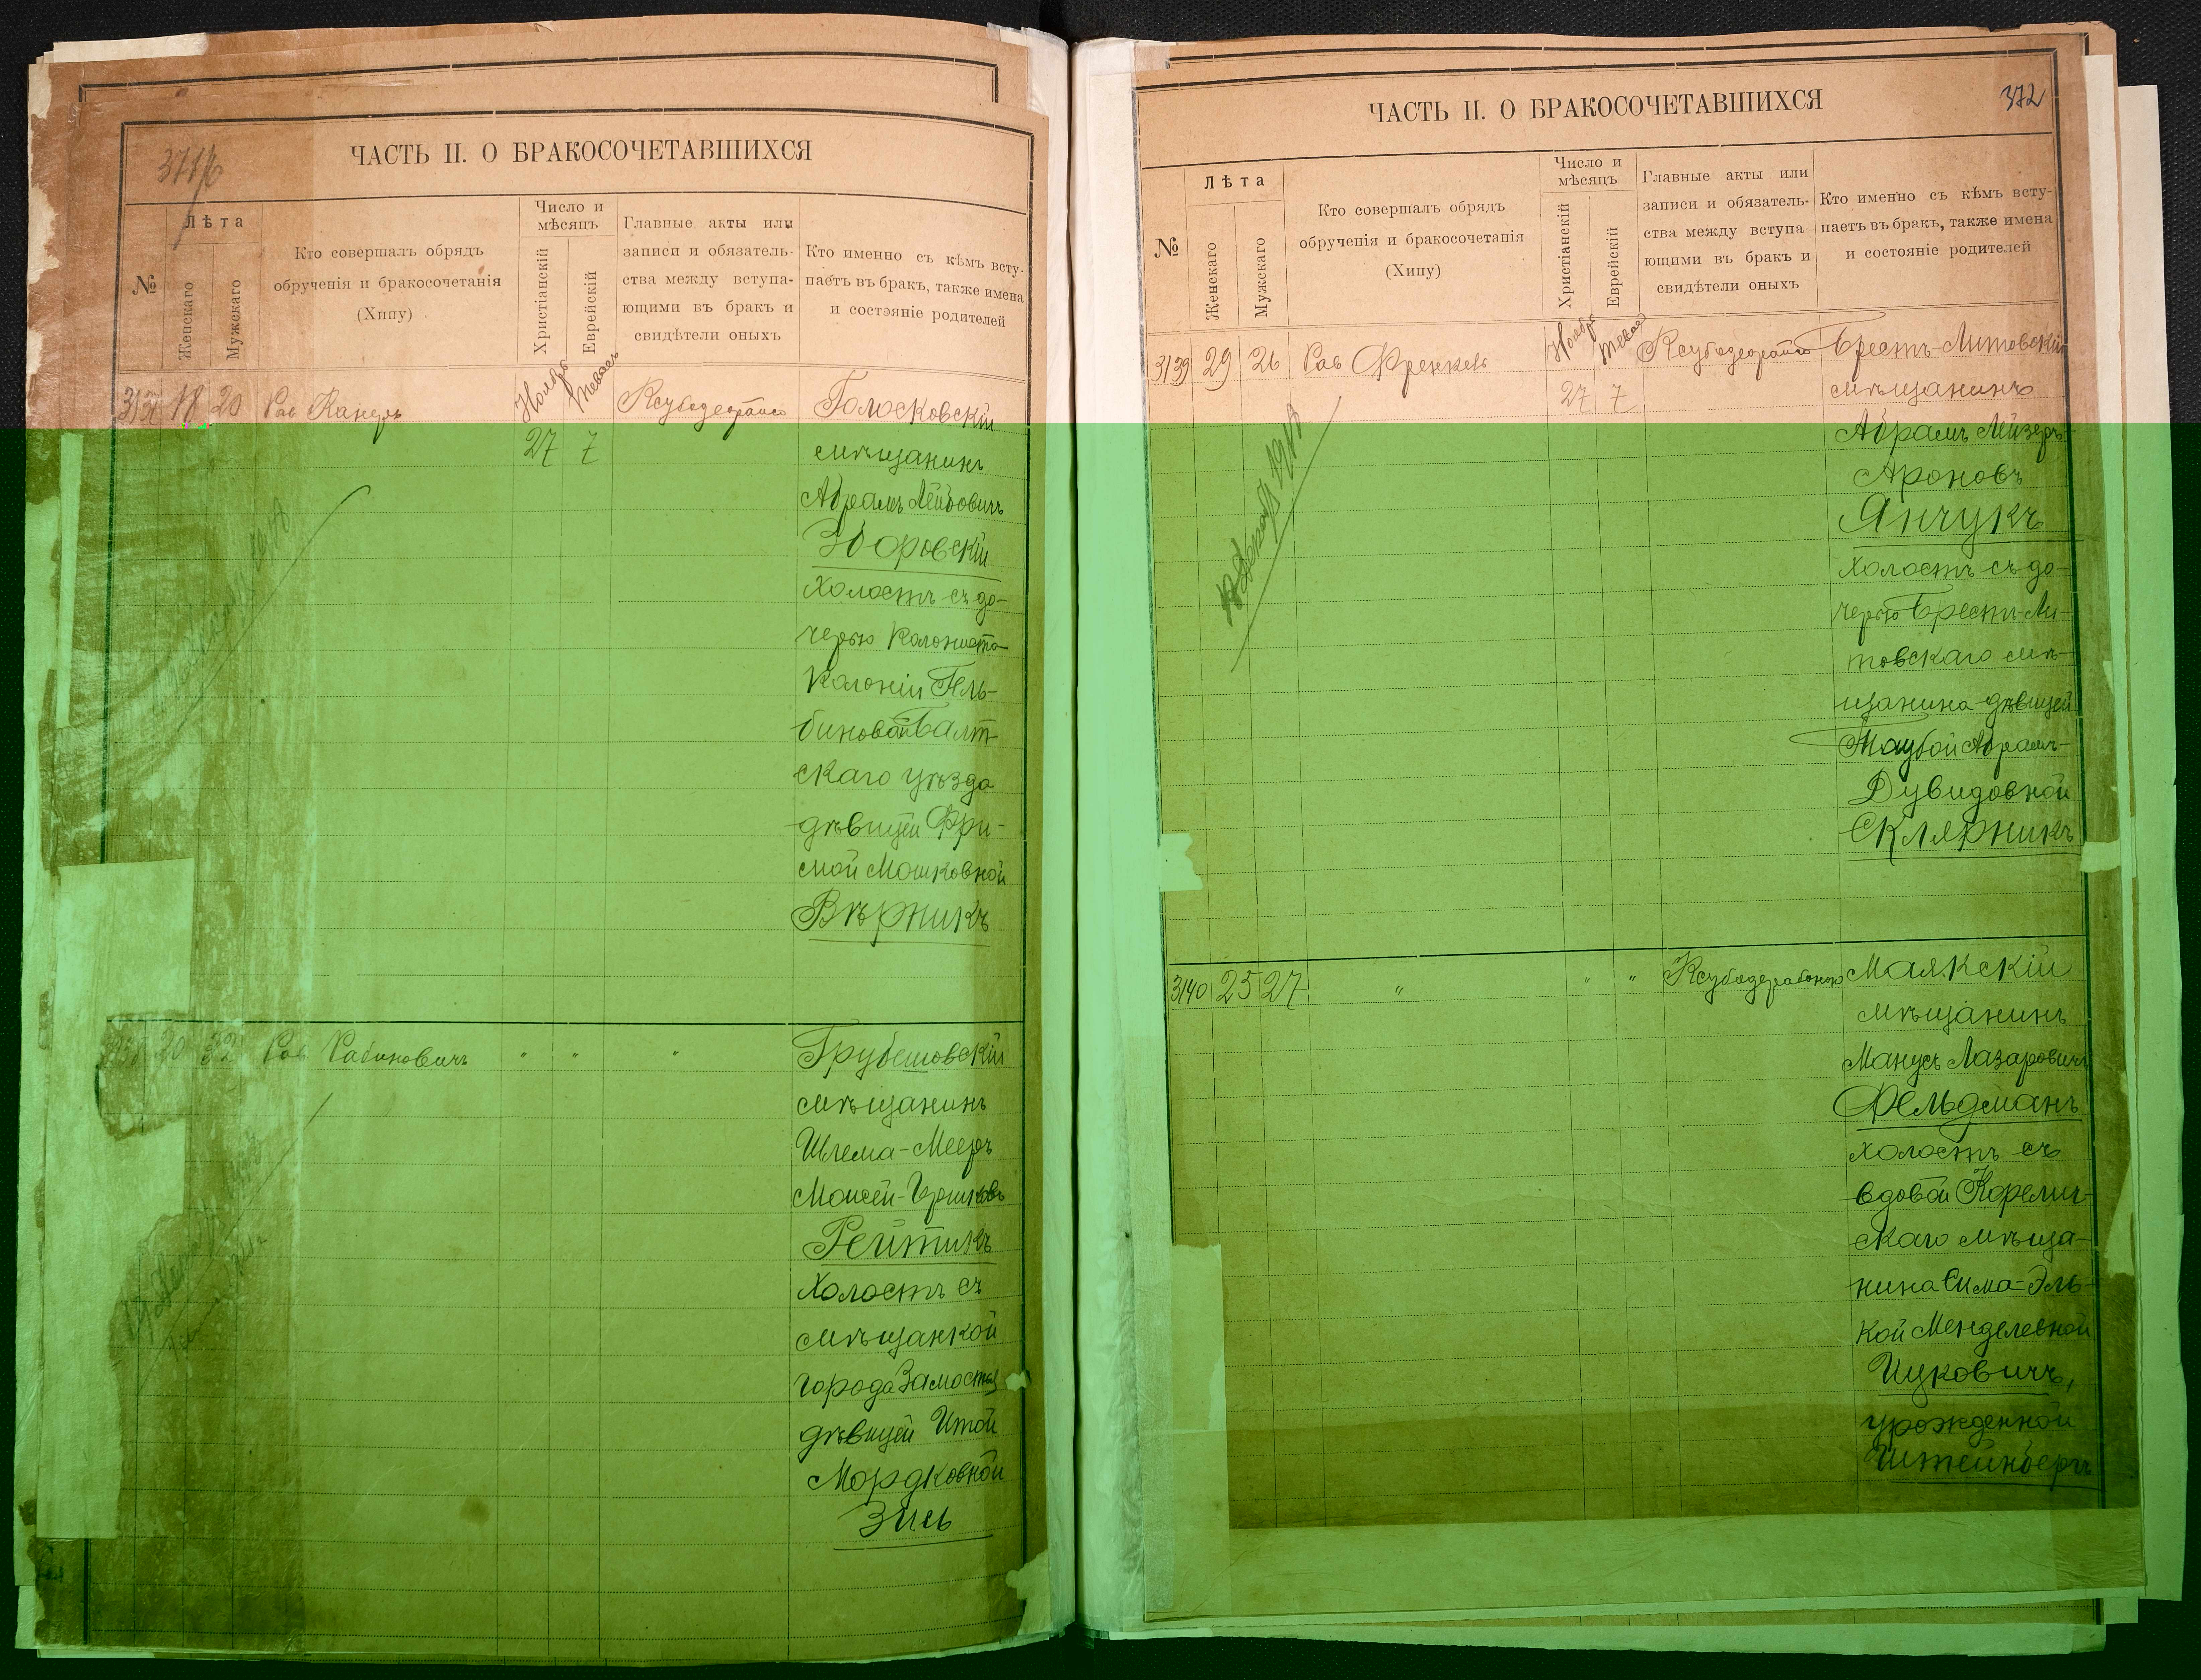 371/б
ЧАСТЬ II. О БРАКОСОЧЕТАВШИХСЯ
№
Лѣта
Женскаго
Мужскаго
Кто совершалъ обрядъ
обрученія и бракосочетанія
(Хипу)
Число и
мѣсяцъ
Христіанскій
Еврейскій
Главные акты или
записи и обязатель-
ства между вступа-
ющими въ бракъ и
свидѣтели оныхъ
Кто именно съ кѣмъ всту-
паетъ въ бракъ, также имена
и состояніе родителей
18 20 Рав Канеръ
Ноябрь
Тевасъ
27 7
Голосковскій
мѣщанинъ
Абрамъ Лейбовичъ
Зборовскій
холостъ съ до-
черью колониста
колоніи Гель-
биновой Балт-
скаго уѣзда
дѣвицей Фри-
мой Мошковной
Вѣрникъ
20 32 Рав Рабиновичъ " " "
Грубешовскій
мѣщанинъ
Шлема-Мееръ
Моисей-Гершковъ
Рейтикъ
холостъ съ
мѣщанкой
города Замостья
дѣвицей Итой
Мордковной
Зись
372
ЧАСТЬ II. О БРАКОСОЧЕТАВШИХСЯ
№
Лѣта
Женскаго
Мужскаго
Кто совершалъ обрядъ
обрученія и бракосочетанія
(Хипу)
Число и
мѣсяцъ
Христіанскій
Еврейскій
Главные акты или
записи и обязатель-
ства между вступа-
ющими въ бракъ и
свидѣтели оныхъ
Кто именно съ кѣмъ всту-
паетъ въ бракъ, также имена
и состояніе родителей
3139 29 26 Рав Френкель
Ноябрь
Тевасъ
27 7
Брестъ-Литовскій
мѣщанинъ
Абрамъ Лейзеръ-
Ароновъ
Янчукъ
холостъ съ до-
черью Брестъ-Ли-
товскаго мѣ-
щанина дѣвицей
Таубой Абрамъ-
Дувидовной
Склярникъ
3140 25 27 " " "
Маякскій
мѣщанинъ
Манусъ Лазаровичъ
Фельдманъ
холостъ съ
вдовой Корелич-
скаго мѣща-
нина Сима-Эль-
кой Менделевной
Ицковичъ,
урожденной
Штейнбергъ